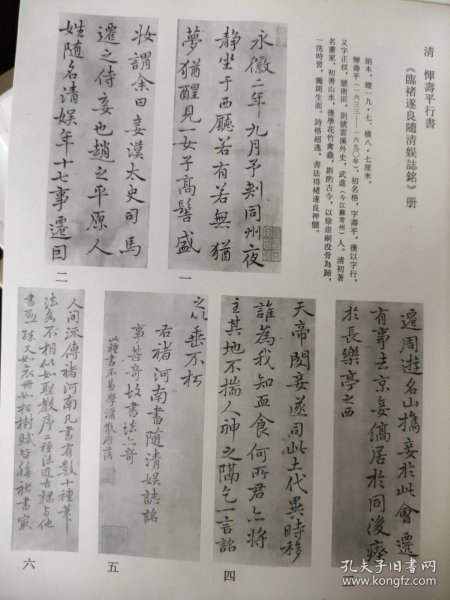 清　惲壽平行書
《臨褚遂良隨清娛誌銘》册
絹本，縱一九·七、横八·七厘米。
惲壽平（一六三三—一六九〇年），初名格，字壽平，後以字行，
又字正叔，號南田，别號雲溪外史，武進（今江蘇常州）人。清初著
名畫家，初善山水，後學花竹禽蟲，斟酌古今，以徐崇嗣没骨為歸，
一洗時習，獨開生面。詩格超逸，書法得褚遂良神髓。
永徽二年九月予刾同州夜
静坐于西廳若有若無猶
夢猶醒見一女子高髻盛
一
妝謂余曰妾漢太史司馬
遷之侍妾也趙之平原人
姓隨名清娛年十七事遷因
二
遷周遊名山攜妾於此會遷
有事去京妾僑居於同後
於長樂亭之西
天帝閔妾遂司此土代異時移
誰為我知血食何所君亦將
主其地不揣人神之隔乞一言銘
四
之以垂不朽
右褚河南書隨清娛誌銘
事甚奇故書法亦奇
此種書不易學
五
人間流傳褚河南凡書有數十種筆
法各不相似如聖教序二種法近古隸与他
書
六
孔夫子旧书网
book.kongfz.com